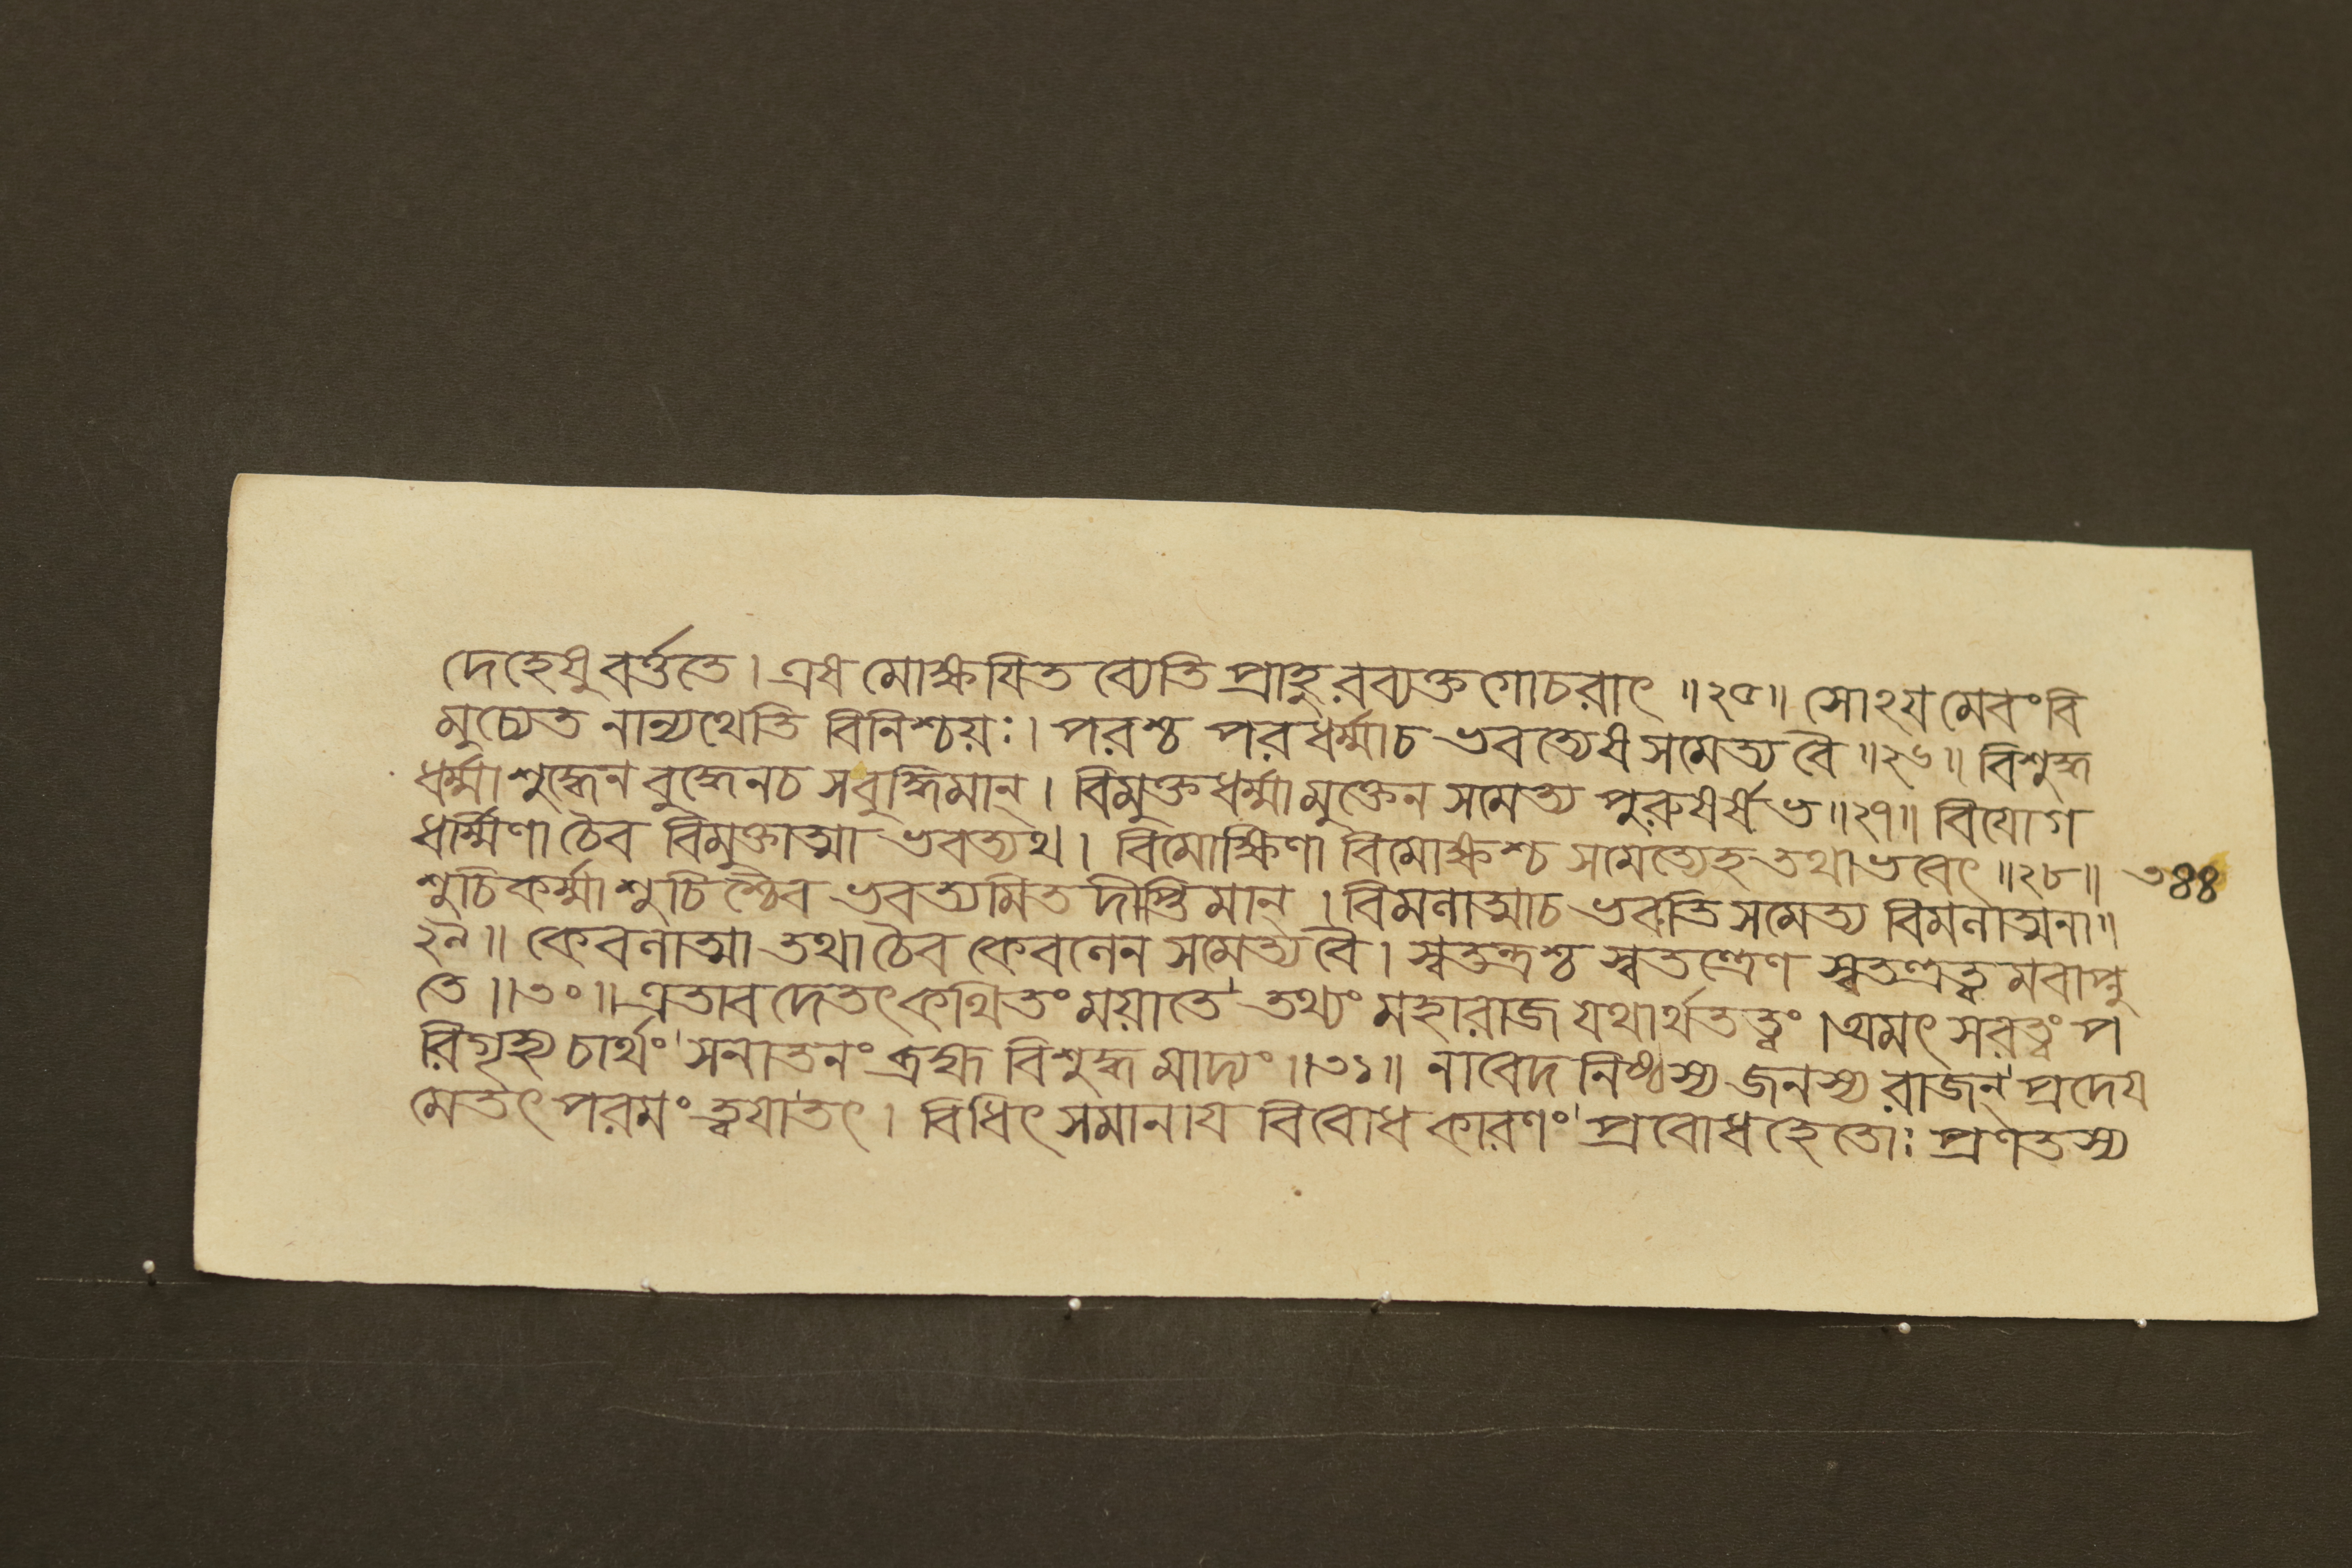 দেহেষু বর্ত্ততে । এষ মোক্ষযিতব্যেতি প্রাহুরব্যক্তগোচরাৎ ॥২৫॥ সোঽযমেবং বি
মুচ্যেত নান্যথেতি বিনিশ্চয়ঃ । পরশ্চ পরধর্ম্মাচ ভবত্যেষ সমেত্য বৈ ॥২৬॥ বিশুদ্ধ
ধর্ম্মা শুদ্ধেন বুদ্ধেনচ সবুদ্ধিমান্ । বিমুক্তধর্ম্মা মুক্তেন সমেত্য পুরুষর্ষভ ॥২৭॥ বিযোগ
ধর্ম্মিণা চৈব বিমুক্তাত্মা ভবত্যথ । বিমোক্ষিণা বিমোক্ষশ্চ সমেত্যেহ তথা ভবেৎ ॥২৮॥ ৩৪৪
শুচিকর্ম্মা শুচিশ্চৈব ভবত্যমিতদীপ্তিমান্ । বিমলাত্মাচ ভবতি সমেত্য বিমলাত্মনা ॥
২৯॥ কেবলাত্মা তথা চৈব কেবলেন সমেত্য বৈ । স্বতন্ত্রশ্চ স্বতন্ত্রেণ স্বতন্ত্রত্বমবাপ্নু
তে ॥৩০॥ এতাবদেতৎ কথিতং ময়া তে' তথ্যং মহারাজ যথার্থতত্ত্বং । অমৎসরত্বং প
রিগৃহ্য চার্থং' সনাতনং ব্রহ্ম বিশুদ্ধমাদ্যং ॥৩১॥ নাবেদনিষ্ঠস্য জনস্য রাজন্' প্রদেয
মেতৎ পরমং ত্বযা তৎ । বিধিৎসমানায বিবোধকারণং' প্রবোধহেতোঃ প্রণতস্য